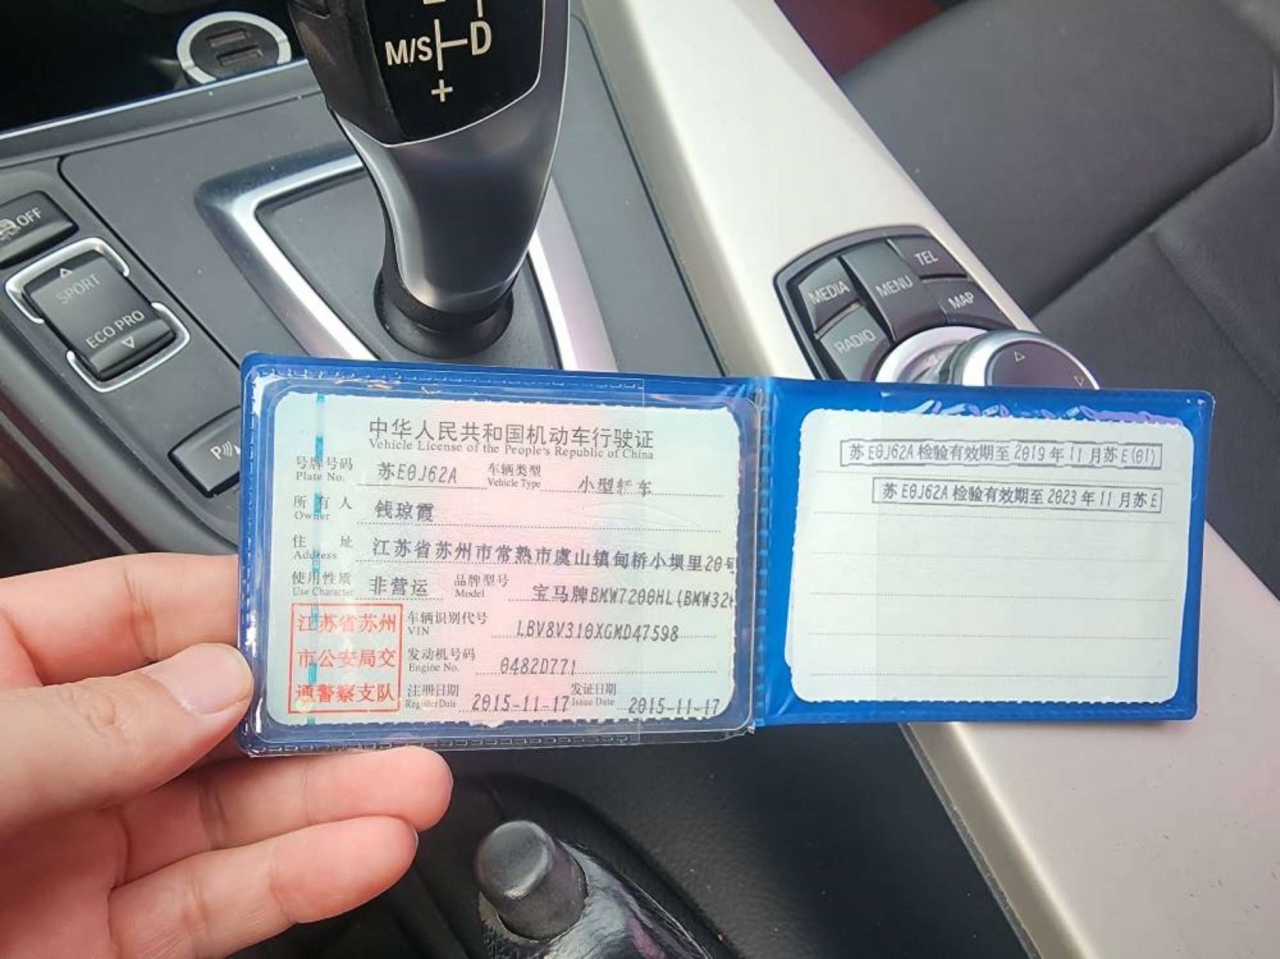 M/S
D
+
OFF
SPORT
ECO PRO
P
MEDIA
MENU
TEL
RADIO
MAP
中华人民共和国机动车行驶证
Vehicle License of the People's Republic of China
号牌号码 苏E0J62A 车辆类型 小型轿车
Plate No. Vehicle Type
所有人 钱琼霞
Owner
住址 江苏省苏州市常熟市虞山镇甸桥小坝里20号
Address
使用性质 非营运 品牌型号 宝马牌BMW7200HL(BMW32
Use Character Model
江苏省苏州
市公安局交
通警察支队
车辆识别代号 LBV8V310XGMD47598
VIN
发动机号码 0482D771
Engine No.
注册日期 2015-11-17 发证日期 2015-11-17
Register Date Issue Date
苏E0J62A 检验有效期至 2019 年 11 月苏 E(01)
苏 E0J62A 检验有效期至 2023 年 11 月苏 E